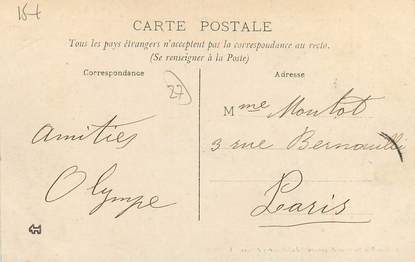 15+
CARTE POSTALE
Tous les pays étrangers n'acceptent pas la correspondance au recto.
(Se renseigner à la Poste)
Correspondance
Adresse
27
Mme Moutot
3 rue Bernoulli
Paris
Amitiés
Olympe